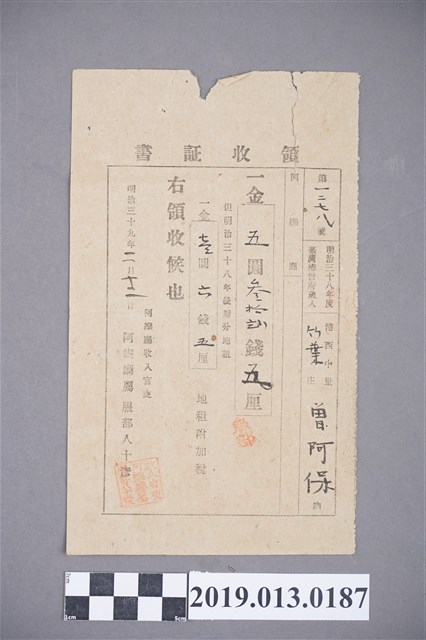 領收証書
第一二七八號
明治三十八年度
臺灣總督府歲入
港西中里
竹葉庄
曾阿保
納
阿緱廳
一金五圓叁拾錢五厘
但明治三十八年後期分地租
一金壱圓六錢五厘 地租附加稅
右領收候也
明治三十九年二月十二日
阿緱廳收入官吏
阿緱廳屬服部八十
1cm
5cm
2019.013.0187